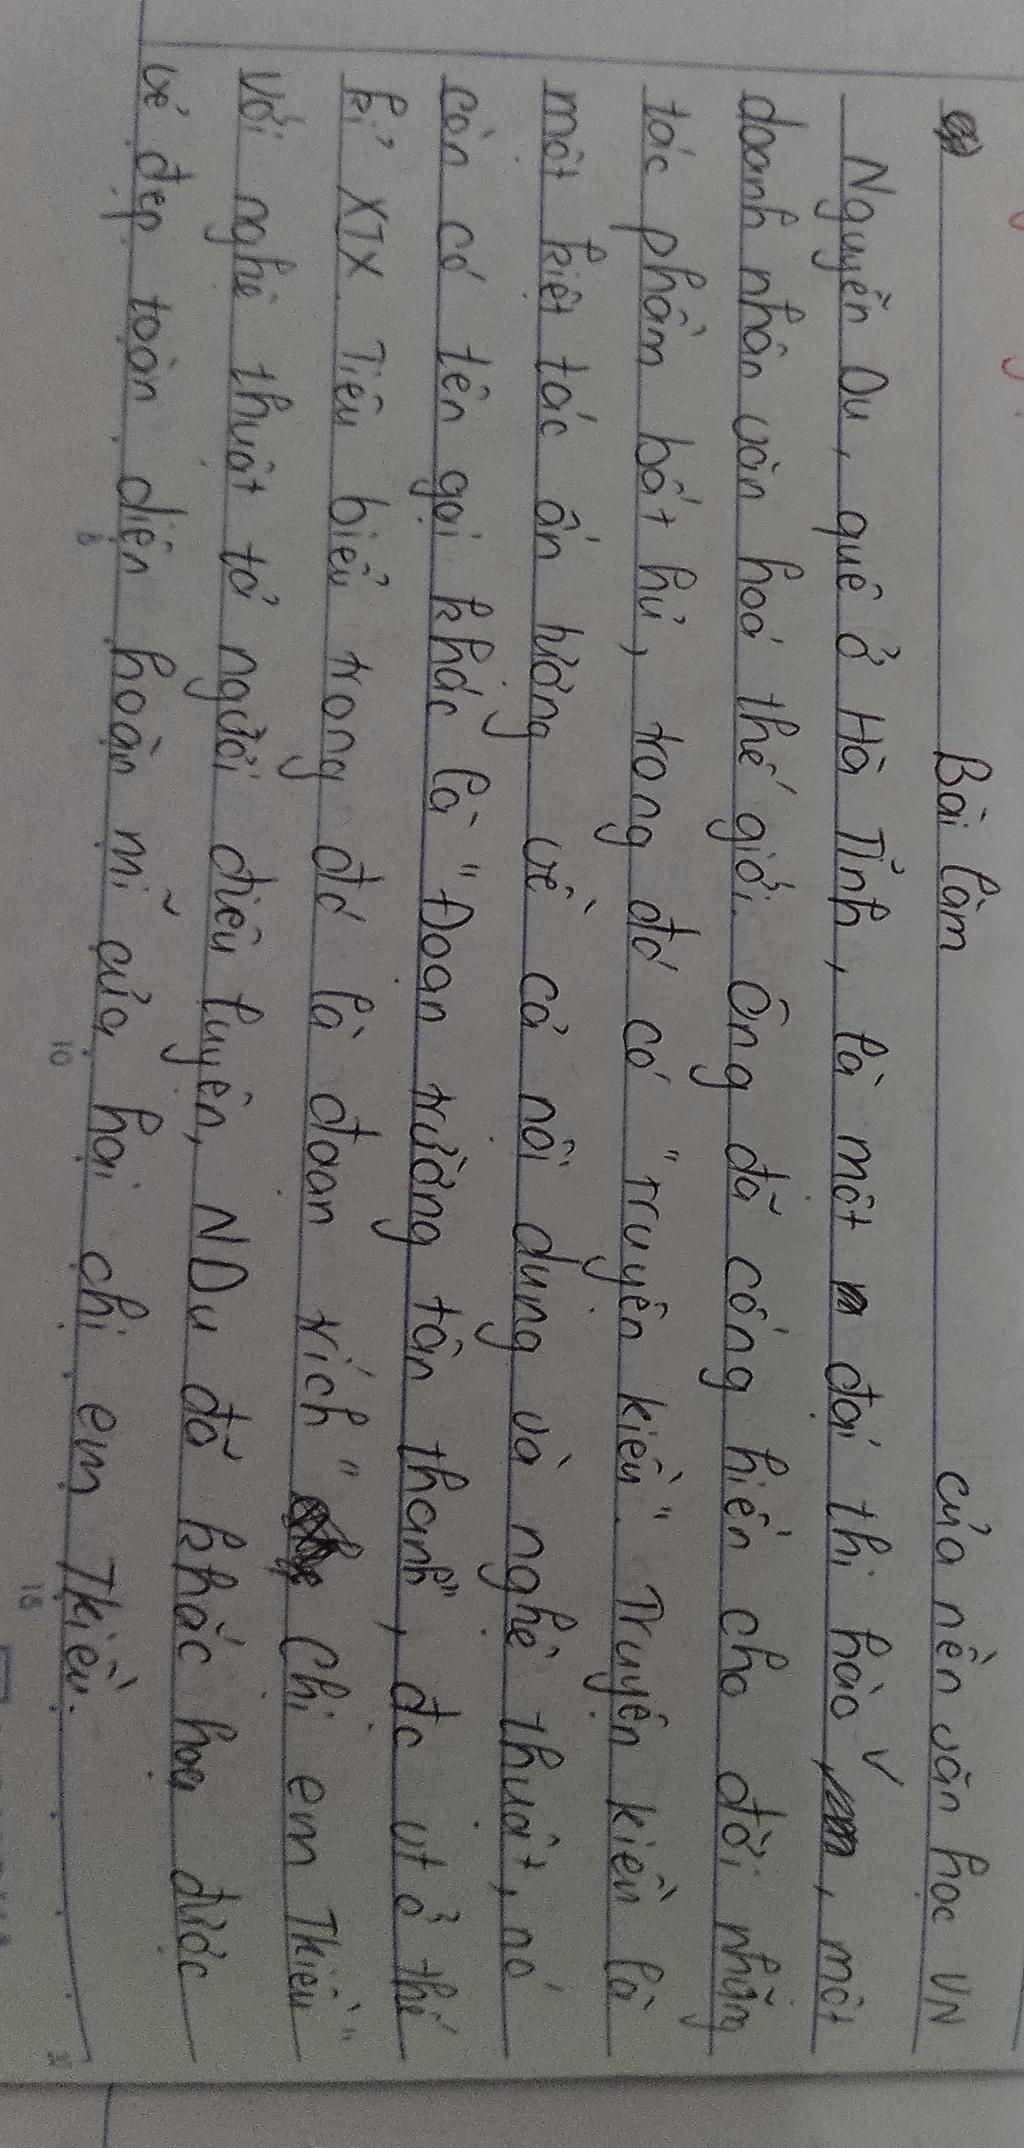 Bài làm
của nền văn học VN
Nguyễn Du, quê ở Hà Tĩnh, là một m đại thi hào, một
doanh nhân văn hoá thế giới. Ông đã cống hiến cho đời những
tác phẩm bất hủ, trong đó có "Truyện kiều". Truyện kiều là
một kiệt tác ấn tượng về cả nội dung và nghệ thuật, nó
còn có tên gọi khác là "Đoạn trường tân thanh", đc vt ở thế
kỉ XIX. Tiêu biểu trong đó là đoạn trích " Chị em Tkiều"
Với nghệ thuật tả người điêu luyện, NDu đã khắc hoạ được
vẻ đẹp toàn diện hoàn mĩ của hai chị em Tkiều.
5
10
15